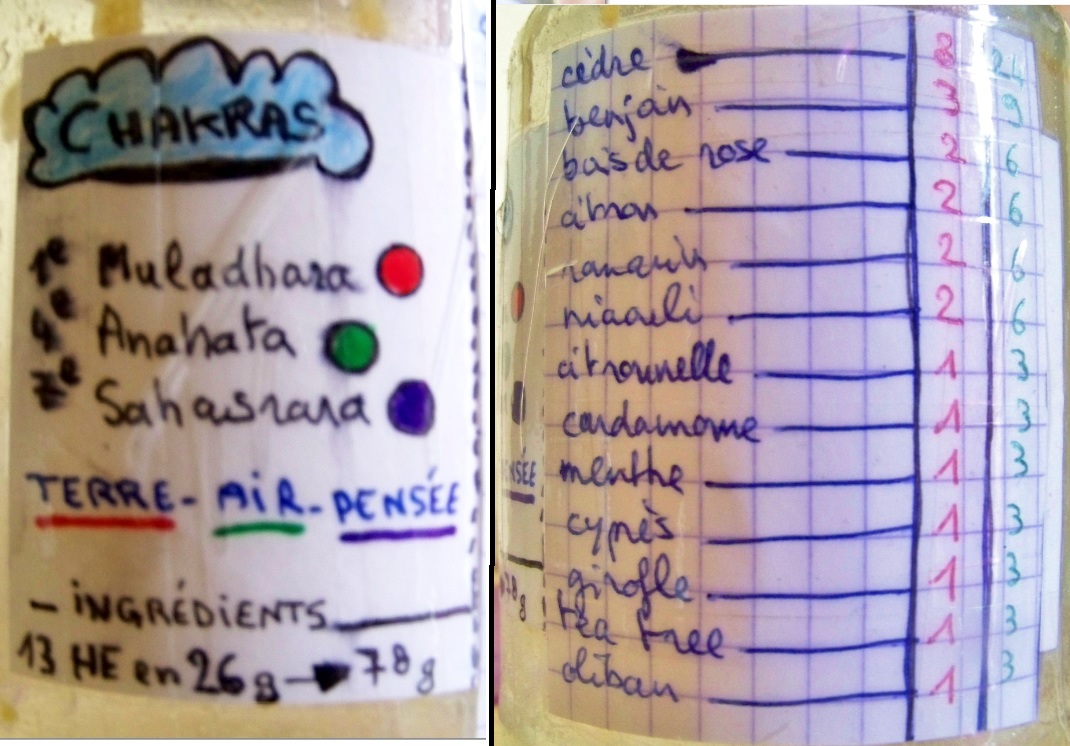 CHAKRAS
1e Muladhara
4e Anahata
7e Sahasrara
TERRE - AiR - PENSÉE
- iNGRÉDiENTS
13 HE en 26g → 78g
cèdre 8 24
benjoin 3 9
bois de rose 2 6
citron 2 6
romarin 2 6
niaouli 2 6
citronnelle 1 3
cardamome 1 3
menthe 1 3
cyprès 1 3
girofle 1 3
tea tree 1 3
oliban 1 3